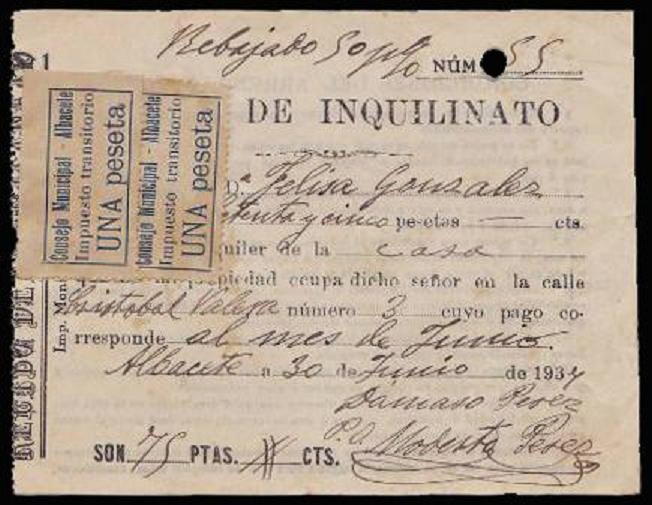 1
Rebajado 50 p%
NÚM 55
DE INQUILINATO
Consejo Municipal - Albacete
Impuesto transitorio
UNA peseta
Consejo Municipal - Albacete
Impuesto transitorio
UNA peseta
D.ª Felisa Gonzalez
tenta y cinco pesetas — cts.
quiler de la casa
piedad ocupa dicho señor en la calle
Cristobal Valera número 3 cuyo pago co-
rresponde al mes de Junio.
Albacete a 30 de Junio de 1937
Damaso Perez
P.O.
Modesta Perez
SON 75 PTAS. CTS.
Imp.